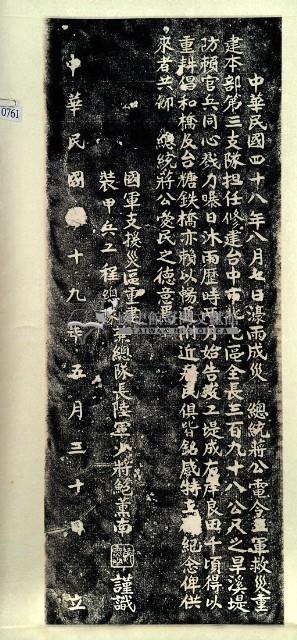 中華民國四十八年八月七日濠雨成災　總統蔣公電令三軍救災重
建本部第三支隊担任修建台中市 區全長三百九十八公尺之旱溪堤
防賴官兵同心戮力曝日沐雨歷時 月始告竣工堤成右岸良田千頃得以
重耕倡和橋及台糖鉄橋亦賴以暢 附近 民俱皆銘感特立 紀念俾供
眾者共仰　總統蔣公愛民之德意焉
國軍支援災區重建 總隊長陸軍少將鮑薰南
裝甲兵工程 謹識
中華民國 十九年五月三十 日 立
0761